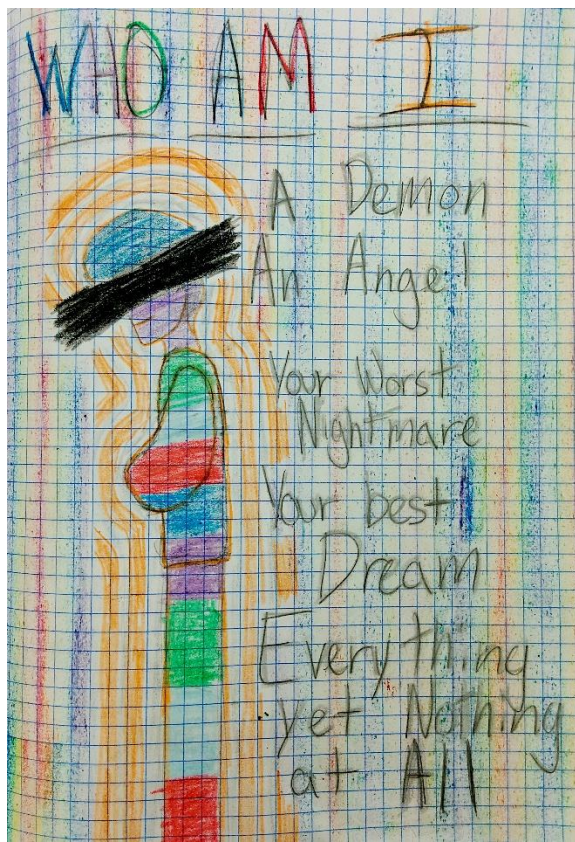 WHO AM I
A Demon
An Angel
Your Worst
Nightmare
Your best
Dream
Everything
yet Nothing
at All